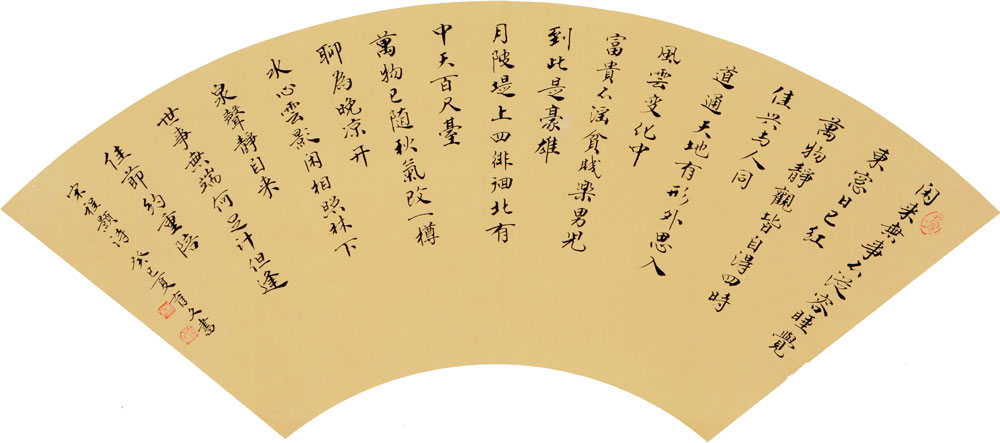 闲来無事不從容睡覺
東窓日已紅
萬物静觀皆自得四時
佳興与人同
道通天地有形外思入
風雲變化中
富貴不淫貧賤樂男兒
到此是豪雄
月陂堤上四徘徊北有
中天百尺臺
萬物已随秋氣改一樽
聊為晚凉开
水心雲影闲相照林下
泉聲静自来
世事無端何足計但逢
佳節約重陪
宋程顥诗 癸巳夏育文書